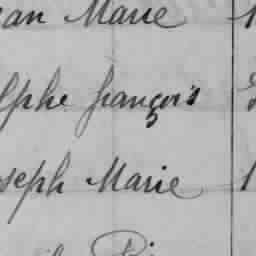 ean Marie 1
lphe françois
seph Marie 1